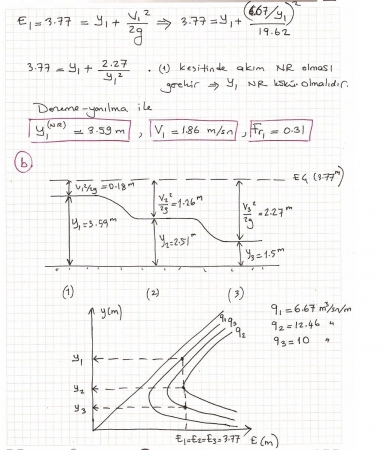 E₁ = 3.77 = y₁ + V₁²/2g ⇒ 3.77 = y₁ + (6.67/y₁)²/19.62
3.77 = y₁ + 2.27/y₁² . (1) kesitinde akım NR olması
gerekir ⇒ y₁ NR kökü olmalıdır.
Deneme-yanılma ile
y₁^(NR) = 3.59 m , V₁ = 1.86 m/sn , Fr₁ = 0.31
(b)
EÇ (3.77 m)
V₁²/2g = 0.18 m
V₂²/2g = 1.26 m
V₃²/2g = 2.27 m
y₁ = 3.59 m
y₂ = 2.51 m
y₃ = 1.5 m
(1) (2) (3)
y(m)
q₁ q₃ q₂
q₁ = 6.67 m³/sn/m
q₂ = 12.46 "
q₃ = 10 "
y₁
y₂
y₃
E₁=E₂=E₃=3.77 E(m)